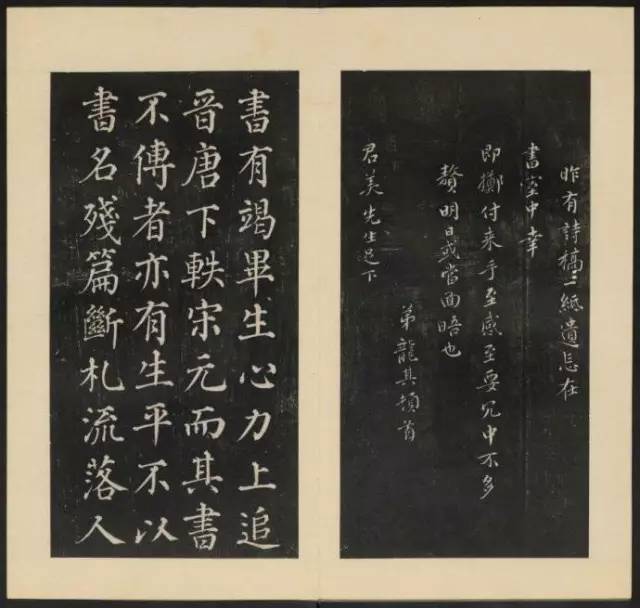 昨有詩稿二紙遺忘在
書室中幸
即擲付来手至感至要冗中不多
贅明日或當面晤也
弟龍其頓首
君美先生足下
書有竭畢生心力上追
晋唐下軼宋元而其書
不傳者亦有生平不以
書名殘篇斷札流落人